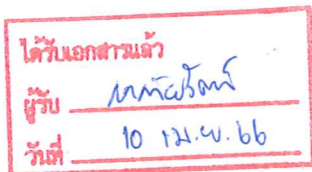 ได้รับเอกสารแล้ว
ผู้รับ
วันที่ 10 เม.ย. 66